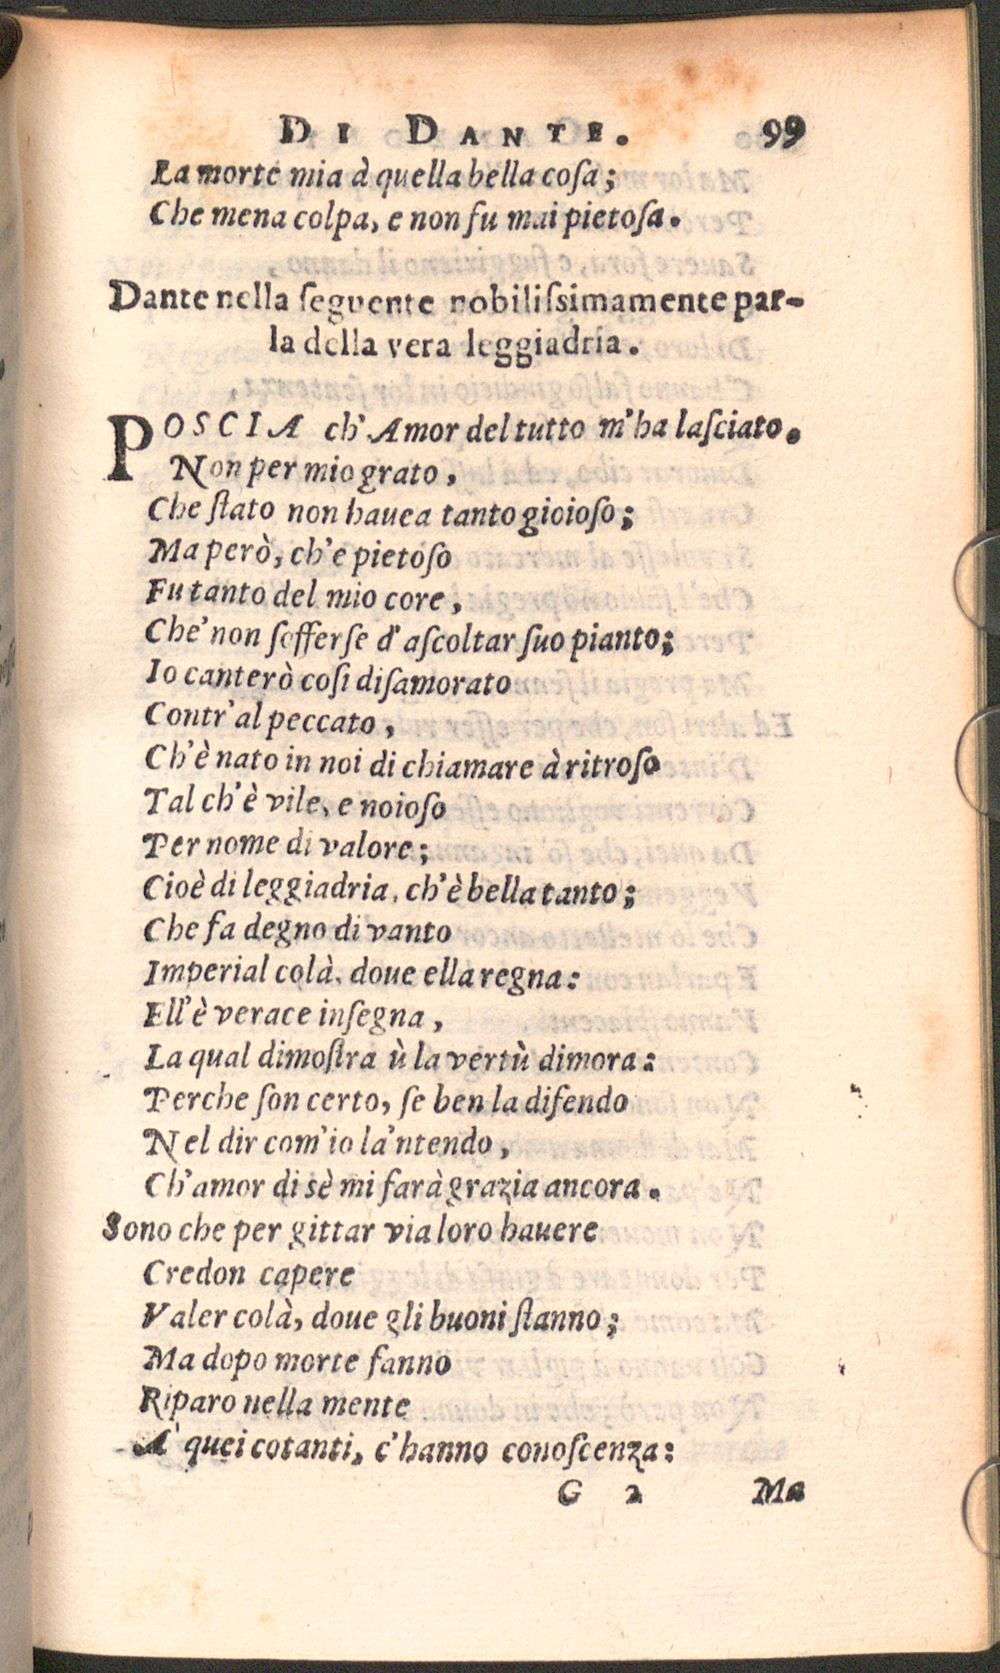 DI DANTE. 99
La morte mia à quella bella coſa;
Che mena colpa, e non fu mai pietoſa.
Dante nella ſeguente nobiliſsimamente par-
la della vera leggiadria.
POSCIA ch'Amor del tutto m'ha laſciato.
Non per mio grato,
Che ſtato non hauea tanto gioioſo;
Ma però, ch'e pietoſo
Fu tanto del mio core,
Che' non ſofferſe d'aſcoltar ſuo pianto;
Io canterò coſi diſamorato
Contr'al peccato,
Ch'è nato in noi di chiamare à ritroſo
Tal ch'è vile, e noioſo
Per nome di valore;
Cioè di leggiadria, ch'è bella tanto;
Che fa degno di vanto
Imperial colà, doue ella regna:
Ell'è verace inſegna,
La qual dimoſtra ù la vertù dimora:
Perche ſon certo, ſe ben la difendo
Nel dir com'io la'ntendo,
Ch'amor di sè mi farà grazia ancora.
Sono che per gittar via loro hauere
Credon capere
Valer colà, doue gli buoni ſtanno;
Ma dopo morte fanno
Riparo nella mente
A' quei cotanti, c'hanno conoſcenza:
G 2 Ma